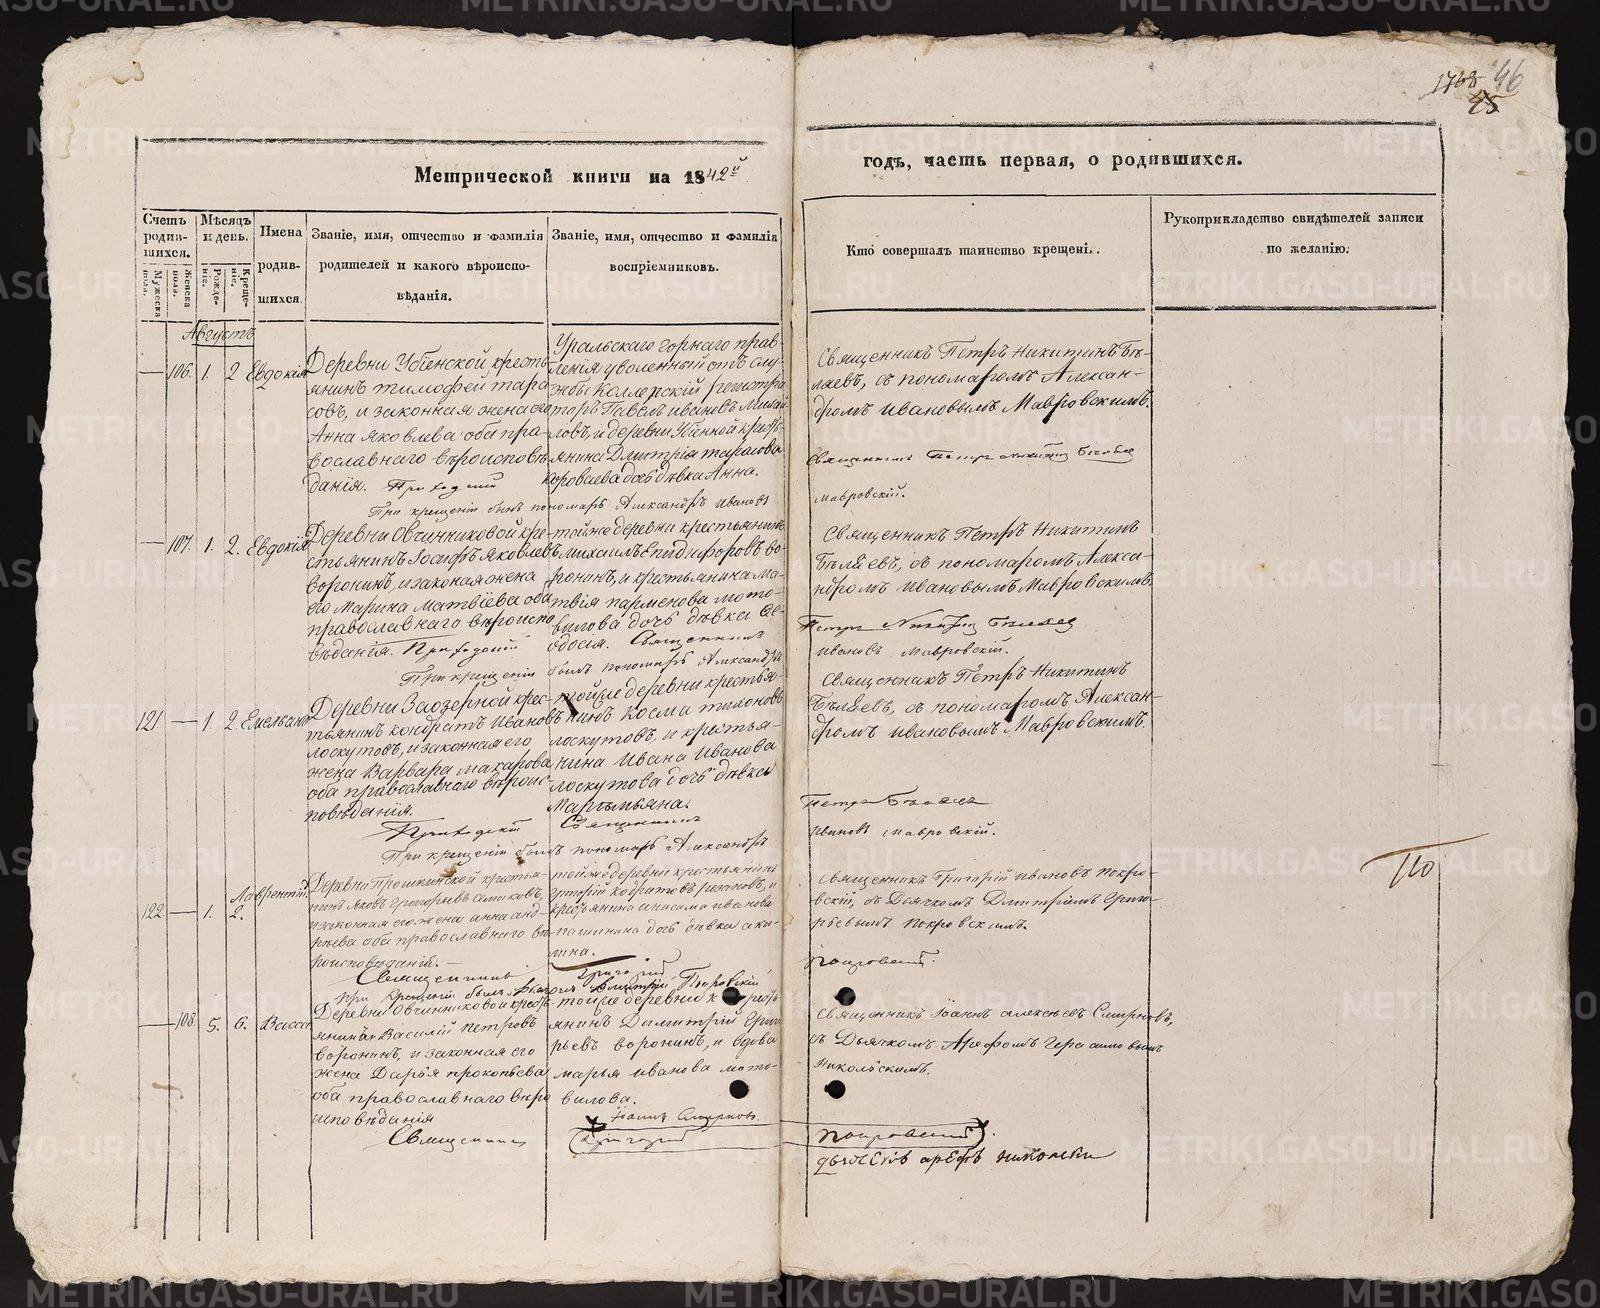 1768 46
45
Метрической книги на 1842й
годъ, часть первая, о родившихся.
Счетъ родив-шихся.
Мужеска пола.
Женска пола.
Мѣсяцъ и день.
Рожде-ніе.
Креще-ніе.
Имена родив-шихся.
Званіе, имя, отчество и фамилія
родителей и какого вѣроиспо-
вѣданія.
Званіе, имя, отчество и фамилія
воспріемниковъ.
Кто совершалъ таинство крещені..
Рукоприкладство свидѣтелей записи
по желанію.
Августъ
— 106. 1. 2 Евдокія
Деревни Убѣенской кресть-
янинъ тимофей тара-
совъ, и законная жена его
Анна яковлева оба пра-
вославнаго вѣроисповѣ-
данія. Приходскій
Уральскаго горнаго прав-
ленія уволенный отъ слу-
жбы Коллежскій регистра
торъ Павелъ ивановъ
ловъ, и деревни кресть-
янина Дмитрія тарасова
дочь дѣвка Анна.
Священникъ Петръ Никитинъ Бѣ-
ляевъ, съ пономаремъ Алексан-
дромъ ивановымъ Мавровскимъ.
Священникъ Петръ Никитин Бѣляев
При крещеніи былъ пономарь Александръ Ивановъ
мавровскій.
— 107. 1. 2. Евдокія
Деревни Овчинниковой кре-
стьянинъ Іосифъ яковлевъ
воронинъ, и законная жена
его Марина матвіева оба
православнаго вѣроиспо
вѣданія. Приходскій
тойже деревни крестьянинъ
михаилъ Епидифоровъ во-
ронинъ, и крестьянина ма-
твія парменова мото-
вилова дочь дѣвка Ѳе-
одосія. Священникъ
Священникъ Петръ Никитинъ
Бѣляевъ, съ пономаромъ Алекса-
ндромъ ивановымъ Мавровскимъ.
Петръ Никитин Бѣляев
При крещеніи былъ пономарь Александръ
ивановъ мавровскій.
121 — 1. 2. Емельянъ
Деревни Заозерной крес-
тьянинъ кондратъ Ивановъ
лоскутовъ, и законная его
жена Варвара макарова
оба православнаго вѣроис-
повѣданія.
Приходскій
тойже деревни крестья-
нинъ Косма тихоновъ
лоскутовъ, и крестья-
нина Ивана Иванова
лоскутова дочь дѣвка
Маремьяна.
Священникъ
Священникъ Петръ Никитинъ
Бѣляевъ, съ пономаромъ Алексан-
дромъ ивановымъ Мавровскимъ.
Петръ Бѣляевъ
При крещеніи былъ пономарь Александръ
Ивановъ мавровскій.
110
122 — 1. 2. Лаврентій
Деревни крестья-
нинъ яковъ григорьевъ
изаконная его жена анна анд-
рѣева оба православнаго вѣ
роисповѣданія.—
Священникъ
тойже деревни крестьянинъ
григорій и
крестьянина иванова
дочь дѣвка аки-
лина.
Григорій
Священникъ Григорій ивановъ покро-
вскій, съ Дьячкомъ Дмитріемъ Григо-
рьевымъ покровскимъ.
покровскій.
при крещеніи былъ Дмитрій Покровскій
— 108. 5. 6. Васса
Деревни Овчинниковой кресть
янинъ Василій петровъ
воронинъ, и законная его
жена Дарья прокопьева
оба православнаго вѣро
исповѣданія
Священникъ
тойже деревни кресть
янинъ Димитрій Григо
рьевъ воронинъ, и вдова
марья иванова мото-
вилова.
Іоаннъ Смирновъ.
Григорій
Священникъ Іоаннъ алексѣевъ Смирновъ,
съ Дьячкомъ Арефомъ Герасимовымъ
никольскимъ.
покровскій.
дьячекъ арефъ никольски
METRIKI.GASO-URAL.RU